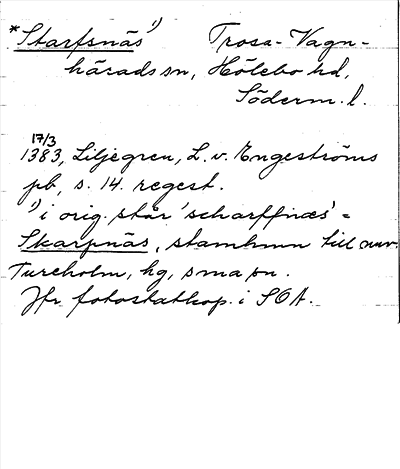 *Starfsnäs 1) Trosa-Vagn-
härads sn, Hölebo hd,
Söderm. l.
17/3
1383, Liljegren, L. v. Engeströms
pb, s. 14. regest.
1) i orig. står 'scharffnæs' =
Skarpnäs, stamhmn till nuv.
Tureholm, hg, sma sn.
Jfr fotostatkop. i SOA.